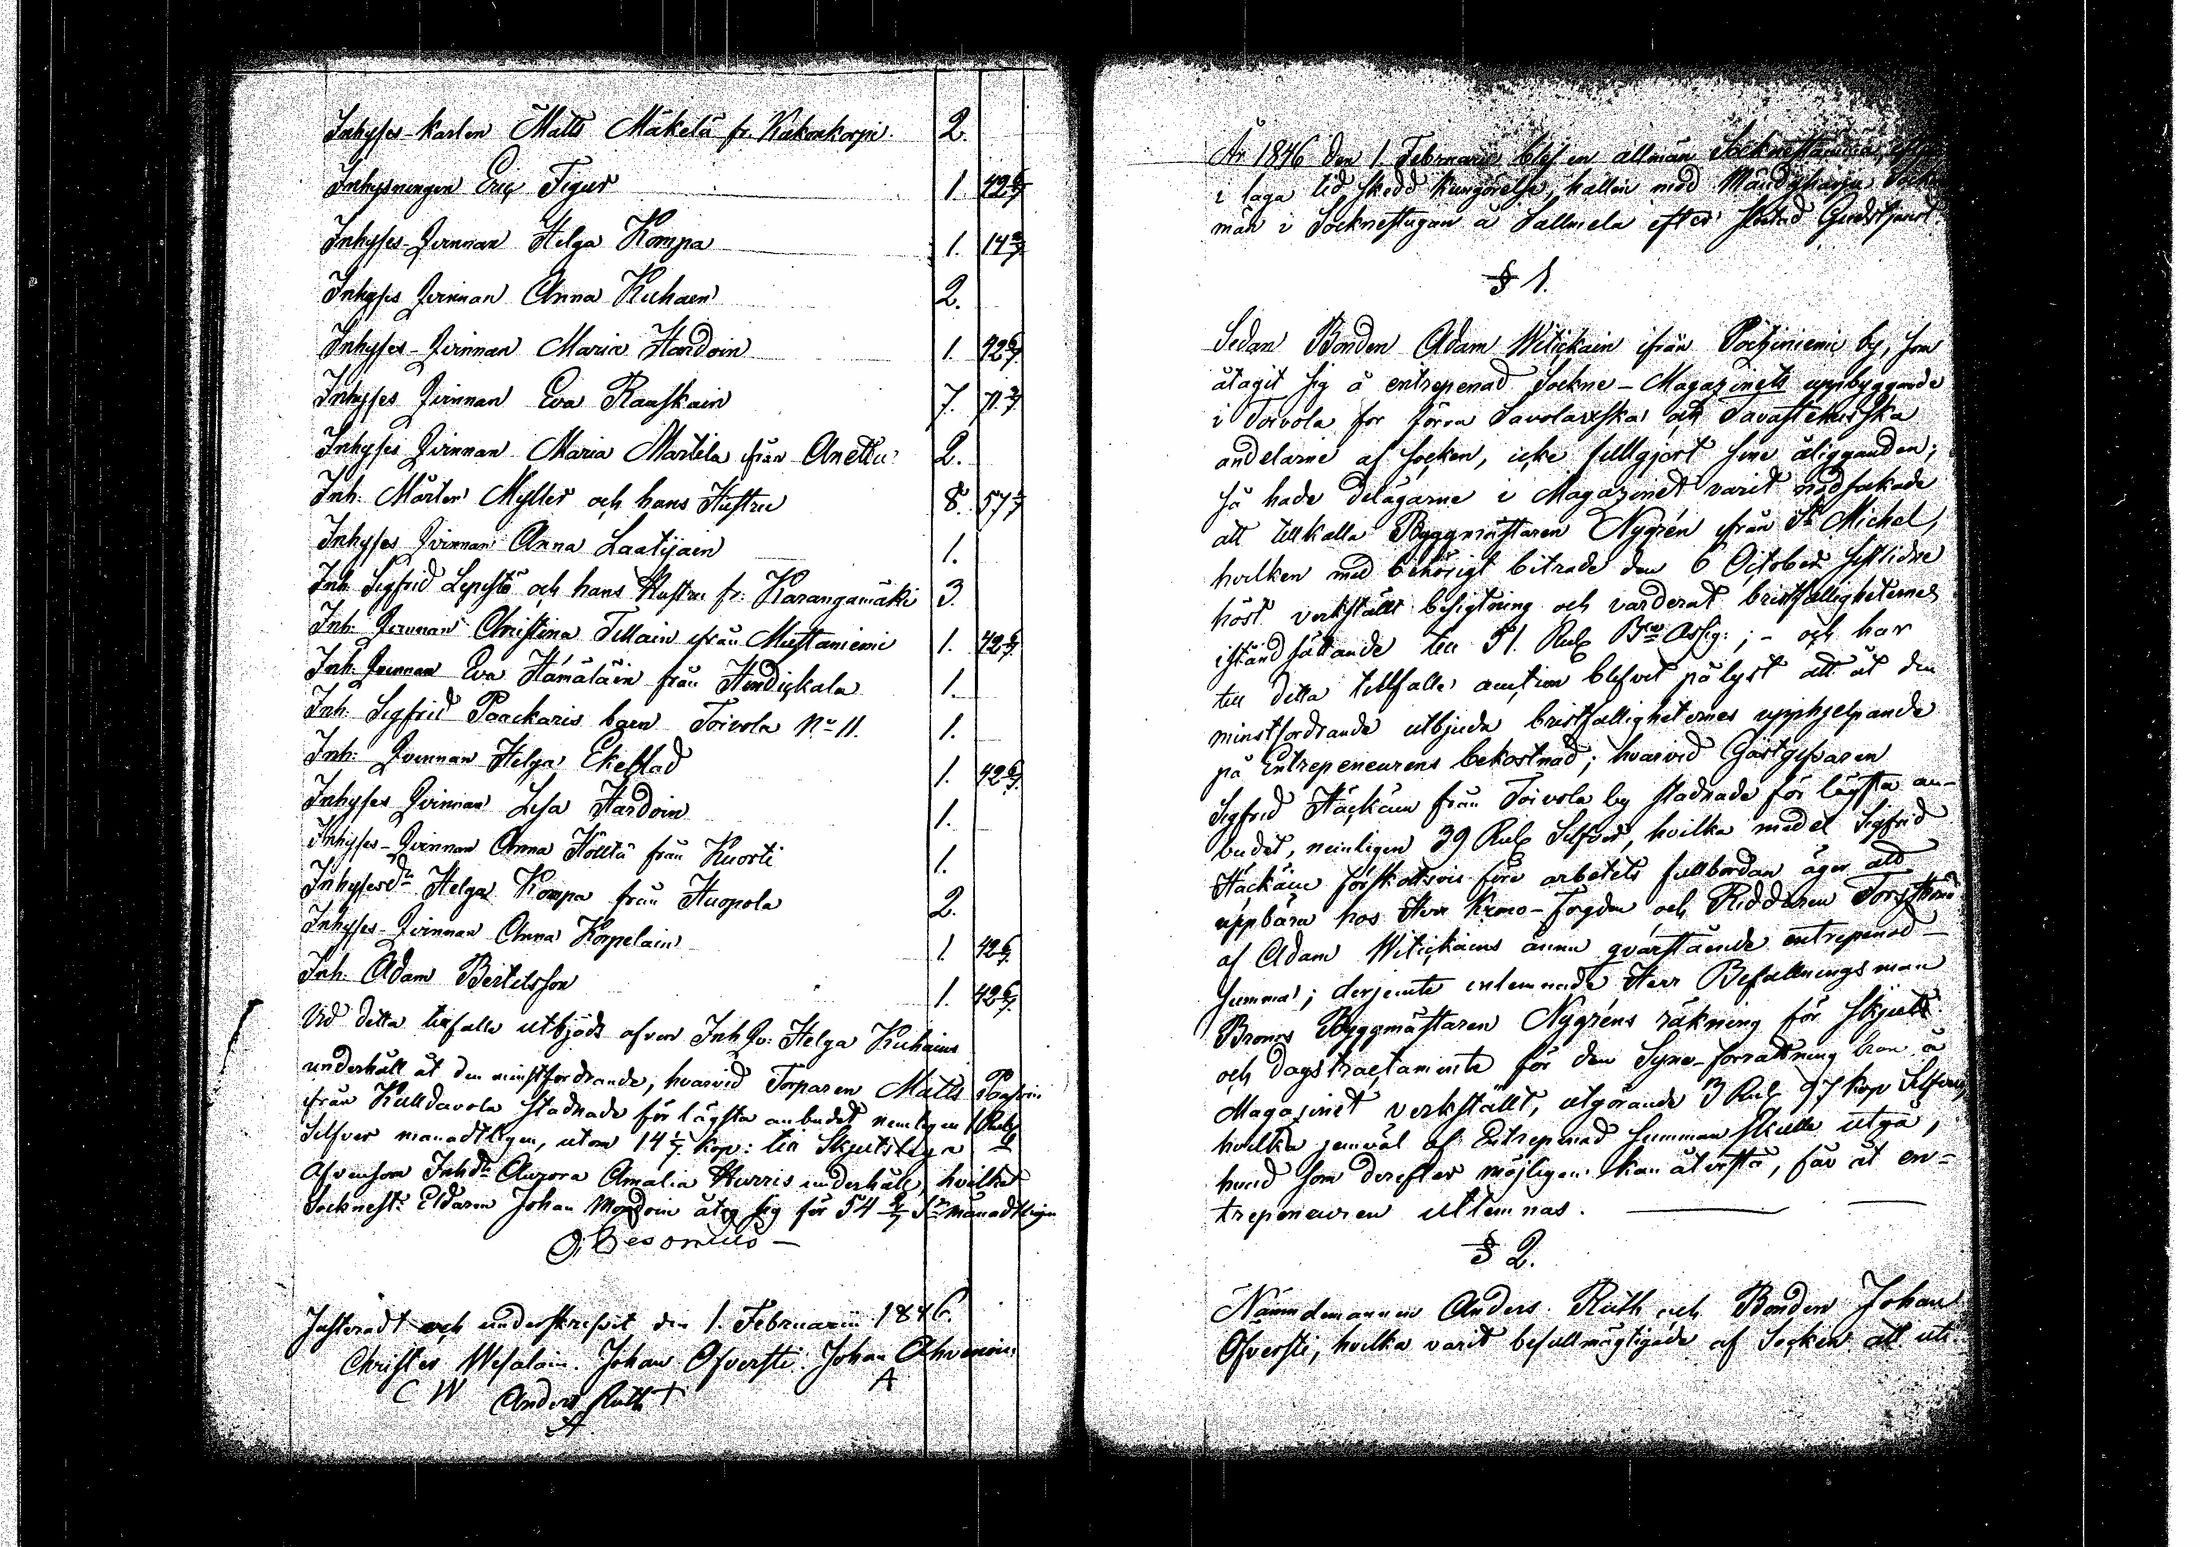 Inhyses-karlen Matts Mäkelä fr. Kakonkorpi 2.
Inhysningen Eric Figur 1. 42 6/7
Inhyses-Qvinnan Helga Kompa 1. 14 2/7
Inhyses Qvinnan Anna Kuhaen 2.
Inhyses-Qvinnan Maria Hardoin 1. 42 6/7
Inhyses Qvinnan Eva Rauskain 7. 71 3/7
Inhyses Qvinnan Maria Martila från Anettu 2.
Inh: Mårten Myller och hans Hustru 8. 57 1/7
Inhyses Qvinnan Anna Laatijaen 1.
Inh: Sigfrid Lepistö och hans Hustru fr: Karangamäki 3.
Inh: Qvinnan Christina Tillain ifrån Mustaniemi 1. 42 6/7
Inh: Qvinnan Eva Hämäläin från Hindickala 1.
Inh: Sigfrid Paackaris barn Toivola No 11. 1.
Inh: Qvinnan Helga Ekeblad 1. 42 6/7
Inhyses Qvinnan Lisa Hardoin 1.
Inhyses-Qvinnan Anna Hölttä från Kuorti 1.
Inhysesd:r Helga Kompa från Huopola 2.
Inhyses-Qvinnan Anna Korpelain 1. 42 6/7
Inh: Adam Bertilsson 1. 42 6/7
Vid detta tillfälle utbjöds äfven Inh Qv: Helga Kuhains
underhåll åt den minstfordrande, hvarvid Torparen Matts
ifrån Kulldavola stadnade för lägsta anbudet nemligen 1 Rub
Silfver månadtligen, utom 14 2/7 kop: till Skjutslega
Äfvensom Inhd:r Aurora Amalia Kurris underhåll, hvilket
Socknest: Eldaren Johan Mondoin åtog sig för 54 2/7 S:r månadtligen
Justeradt och underskrifvit den 1. Februarii 1846.
Christer Wesalain. Johan Ofversti. Johan Ahvenoin
C W A
Anders Ruth
År 1846 den 1. Februarii blef en allmän Socknestämma, efter
i laga tid skedd kungörelse, hållen med Mändyharju Sockne
män i Socknestugan å Sallmela efter slutad Gudstjenst.
§ 1.
Sedan Bonden Adam Witickain ifrån Pöchiniemi by, som
åtagit sig å entrepenad Sockne-Magazinets uppbyggande
i Toivola för förra Savolaxska och Tavastehusska
andelarne af socken, icke fullgjort sine åligganden;
så hade delägarne i Magazinet varit nödsakade
att tillkalla Byggmästaren Nygrén från S:t Michel,
hvilken med behörigt biträde den 6 October sistlidne
höst verkställt besigtning och värderat bristfälligheternes
iståndsättande till 51. Rub B:co Assig:; - och har
till detta tillfälle auction blifvit pålyst att åt den
minstfordrande utbjuda bristfälligheternes upphjelpande
på Entrepeneurens bekostnad; hvarvid Gästgifvaren
Sigfrid Häckäin från Toivola by stadnade för lägsta an-
budet, nemligen 39 Rub Silfver, hvilka medel Sigfrid
Häckäin förskottsvis före arbetets fullbordan äger att
uppbära hos Herr Krono-Fogden och Riddaren Forsström
af Adam Witickains ännu qvarstående entrepenad-
summa; derjemte inlemnade Herr Befallningsman
Bronos Byggmästaren Nygréns räkning för skjuts
och dagstractamente för den Syne-förrättning han å
Magazinet verkställt, utgörande 3 Rub 97 kop Silfver,
hvilka jemväl af Entrepenad summan skulle utgå,
hvad som derefter möjligen kan återstå, får åt en-
trepeneuren utlemnas.
§ 2.
Nämndemannen Anders Ruth och Bonden Johan
Ofversti, hvilka varit befullmägtigade af Socken att uti